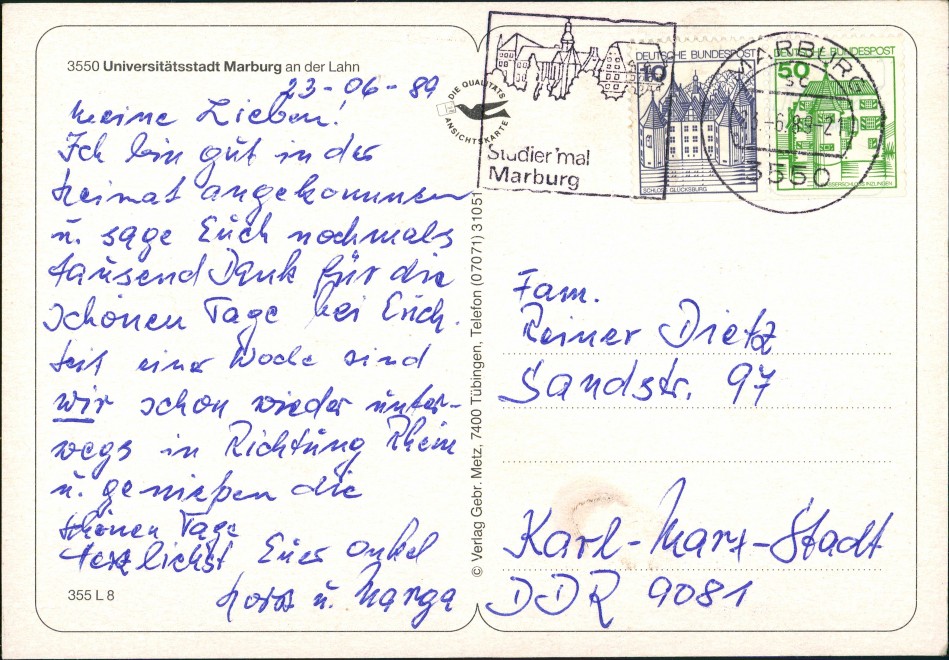 3550 Universitätsstadt Marburg an der Lahn
23-06-89
Meine Lieben!
Ich bin gut in der
Heimat angekommen
u. sage Euch nochmals
tausend Dank für die
schönen Tage bei Euch.
Seit einer Woche sind
wir schon wieder unter-
wegs in Richtung Rhein
u. genießen die
schönen Tage
Herzlichst Euer Onkel
Horst u. Marga
355 L 8
DIE QUALITÄTS
ANSICHTSKARTE
© Verlag Gebr. Metz, 7400 Tübingen, Telefon (07071) 31051
Studier'mal
Marburg
DEUTSCHE BUNDESPOST
10
SCHLOSS GLÜCKSBURG
DEUTSCHE BUNDESPOST
50
WASSERSCHLOSS INZLINGEN
MARBURG
-6.89-21
3550
Fam.
Reiner Dietz
Sandstr. 97
Karl-Marx-Stadt
DDR 9081